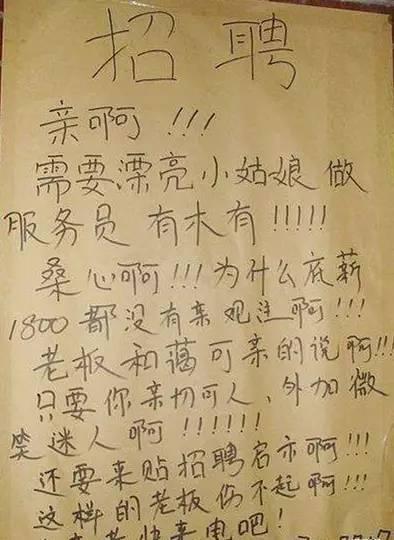 招聘
亲啊!!!
需要漂亮小姑娘做
服务员 有木有!!!!!
桑心啊!!!为什么底薪
1800都没有亲观注啊!!!
老板和蔼可亲的说啊!!!
只要你亲切可人、外加微
笑迷人啊!!!!!!
还要来贴招聘启示啊!!!
这样的老板伤不起啊!!!
快来电吧!